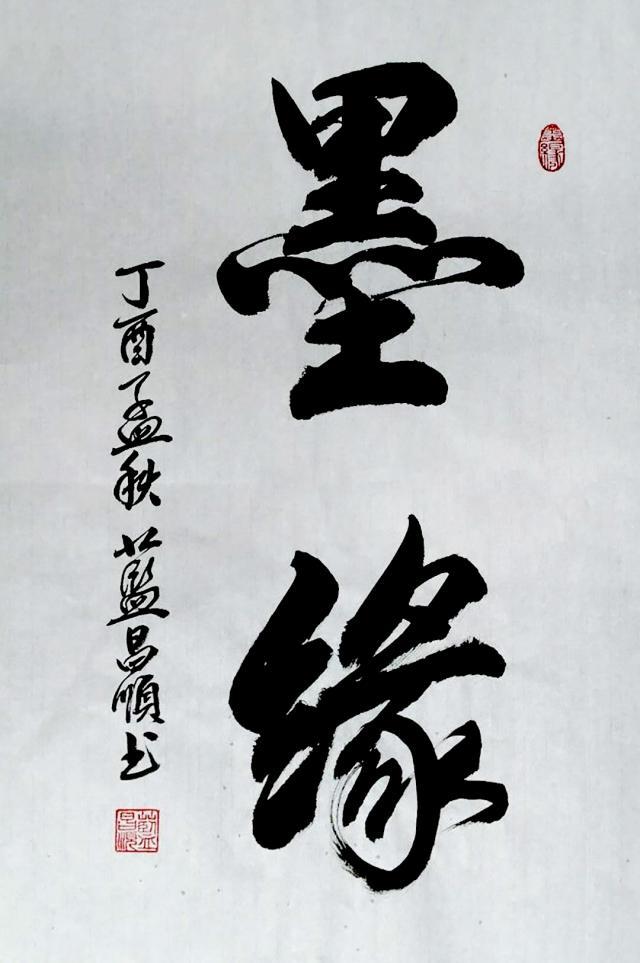 墨缘
丁酉孟秋蓝昌顺书